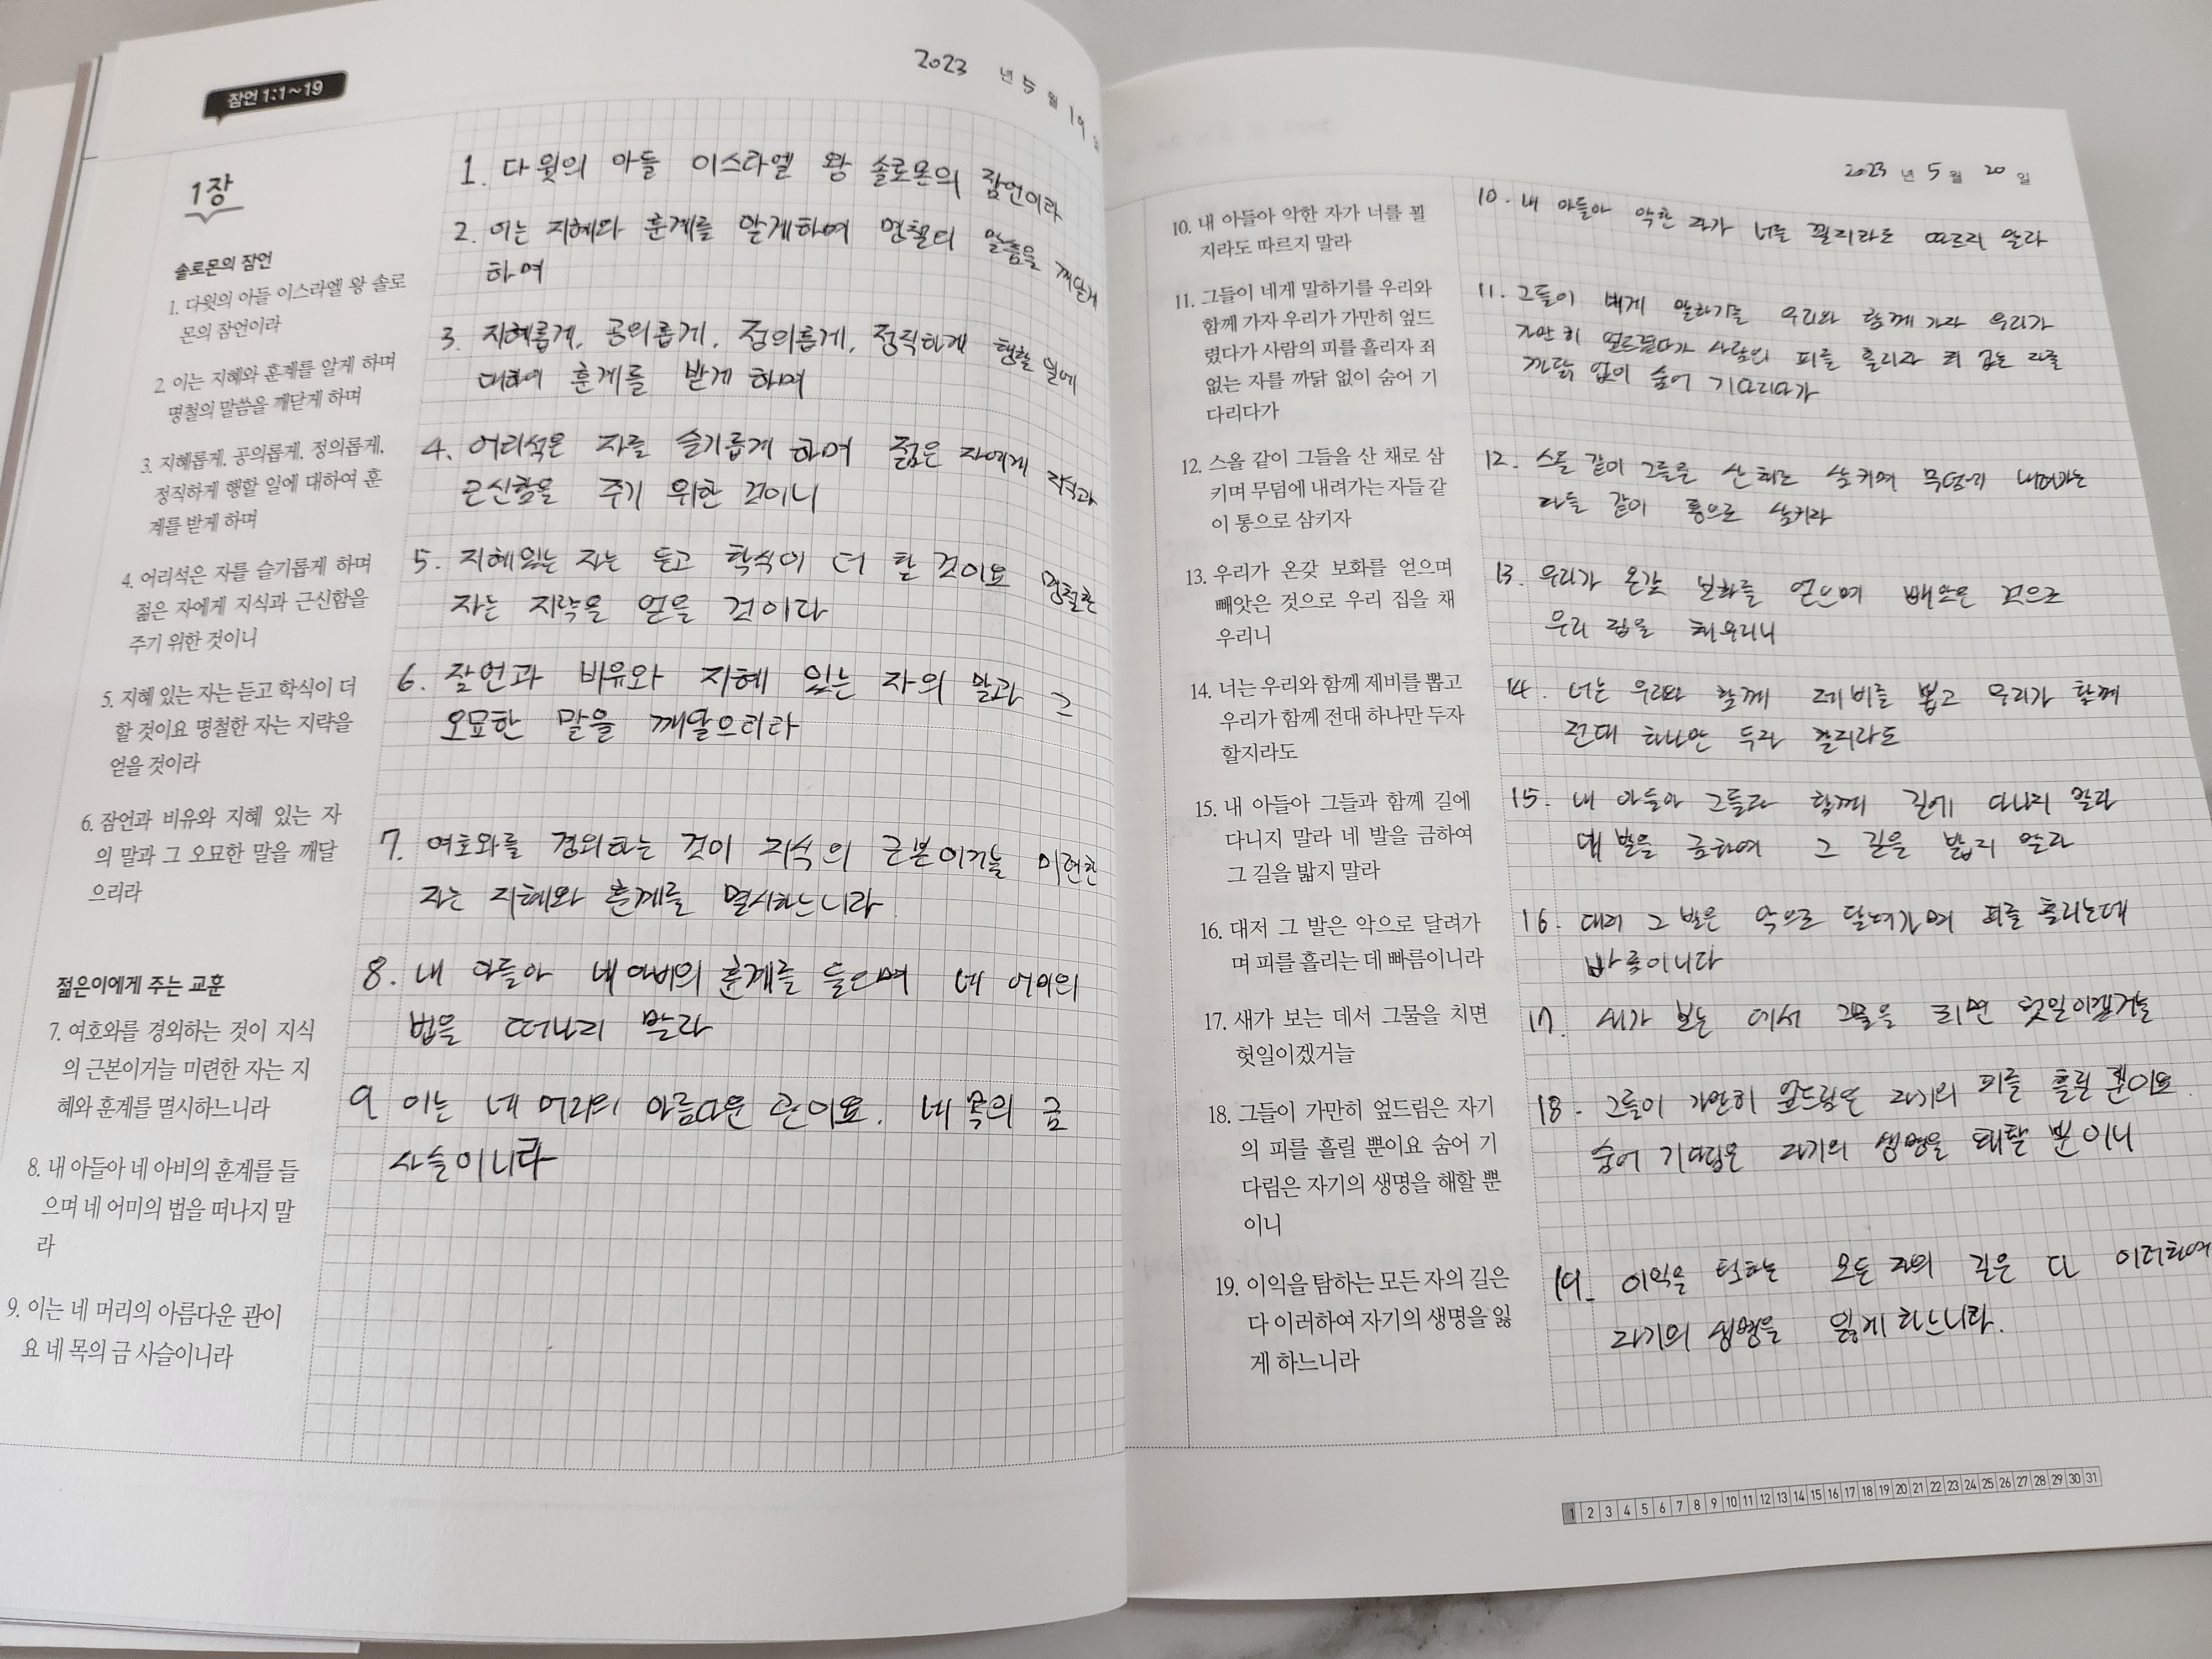 잠언 1:1~19
2023 년 5 월 19
1장
솔로몬의 잠언
1. 다윗의 아들 이스라엘 왕 솔로
몬의 잠언이라
2. 이는 지혜와 훈계를 알게 하며
명철의 말씀을 깨닫게 하며
3. 지혜롭게, 공의롭게, 정의롭게,
정직하게 행할 일에 대하여 훈
계를 받게 하며
4. 어리석은 자를 슬기롭게 하며
젊은 자에게 지식과 근신함을
주기 위한 것이니
5. 지혜 있는 자는 듣고 학식이 더
할 것이요 명철한 자는 지략을
얻을 것이라
6. 잠언과 비유와 지혜 있는 자
의 말과 그 오묘한 말을 깨달
으리라
젊은이에게 주는 교훈
7. 여호와를 경외하는 것이 지식
의 근본이거늘 미련한 자는 지
혜와 훈계를 멸시하느니라
8. 내 아들아 네 아비의 훈계를 들
으며 네 어미의 법을 떠나지 말
라
9. 이는 네 머리의 아름다운 관이
요 네 목의 금 사슬이니라
1. 다윗의 아들 이스라엘 왕 솔로몬의 잠언이라
2. 이는 지혜와 훈계를 알게하며 명철의 말씀을 깨닫게
하며
3. 지혜롭게, 공의롭게, 정의롭게, 정직하게 행할 일에
대하여 훈계를 받게 하며
4. 어리석은 자를 슬기롭게 하며 젊은 자에게 지식과
근신함을 주기 위한 것이니
5. 지혜있는 자는 듣고 학식이 더 할 것이요 명철한
자는 지략을 얻을 것이다
6. 잠언과 비유와 지혜 있는 자의 말과 그
오묘한 말을 깨달으리라
7. 여호와를 경외하는 것이 지식의 근본이거늘 미련한
자는 지혜와 훈계를 멸시하느니라.
8. 내 아들아 네 아비의 훈계를 들으며 네 어미의
법을 떠나지 말라
9 이는 네 머리의 아름다운 관이요. 네 목의 금
사슬이니라
2023 년 5 월 20 일
10. 내 아들아 악한 자가 너를 꾈
지라도 따르지 말라
11. 그들이 네게 말하기를 우리와
함께 가자 우리가 가만히 엎드
렸다가 사람의 피를 흘리자 죄
없는 자를 까닭 없이 숨어 기
다리다가
12. 스올 같이 그들을 산 채로 삼
키며 무덤에 내려가는 자들 같
이 통으로 삼키자
13. 우리가 온갖 보화를 얻으며
빼앗은 것으로 우리 집을 채
우리니
14. 너는 우리와 함께 제비를 뽑고
우리가 함께 전대 하나만 두자
할지라도
15. 내 아들아 그들과 함께 길에
다니지 말라 네 발을 금하여
그 길을 밟지 말라
16. 대저 그 발은 악으로 달려가
며 피를 흘리는 데 빠름이니라
17. 새가 보는 데서 그물을 치면
헛일이겠거늘
18. 그들이 가만히 엎드림은 자기
의 피를 흘릴 뿐이요 숨어 기
다림은 자기의 생명을 해할 뿐
이니
19. 이익을 탐하는 모든 자의 길은
다 이러하여 자기의 생명을 잃
게 하느니라
10. 내 아들아 악한 자가 너를 꾈지라도 따르지 말라
11. 그들이 네게 말하기를 우리와 함께 가자 우리가
가만히 엎드렸다가 사람의 피를 흘리자 죄 없는 자를
까닭 없이 숨어 기다리다가
12. 스올 같이 그들을 산 채로 삼키며 무덤에 내려가는
자들 같이 통으로 삼키자
13. 우리가 온갖 보화를 얻으며 빼앗은 것으로
우리 집을 채우리니
14. 너는 우리와 함께 제비를 뽑고 우리가 함께
전대 하나만 두자 할지라도
15. 내 아들아 그들과 함께 길에 다니지 말라
네 발을 금하여 그 길을 밟지 말라
16. 대저 그 발은 악으로 달려가며 피를 흘리는데
빠름이니라
17. 새가 보는 데서 그물을 치면 헛일이겠거늘
18. 그들이 가만히 엎드림은 자기의 피를 흘릴 뿐이요
숨어 기다림은 자기의 생명을 해할 뿐이니
19. 이익을 탐하는 모든 자의 길은 다 이러하여
자기의 생명을 잃게 하느니라.
1 2 3 4 5 6 7 8 9 10 11 12 13 14 15 16 17 18 19 20 21 22 23 24 25 26 27 28 29 30 31